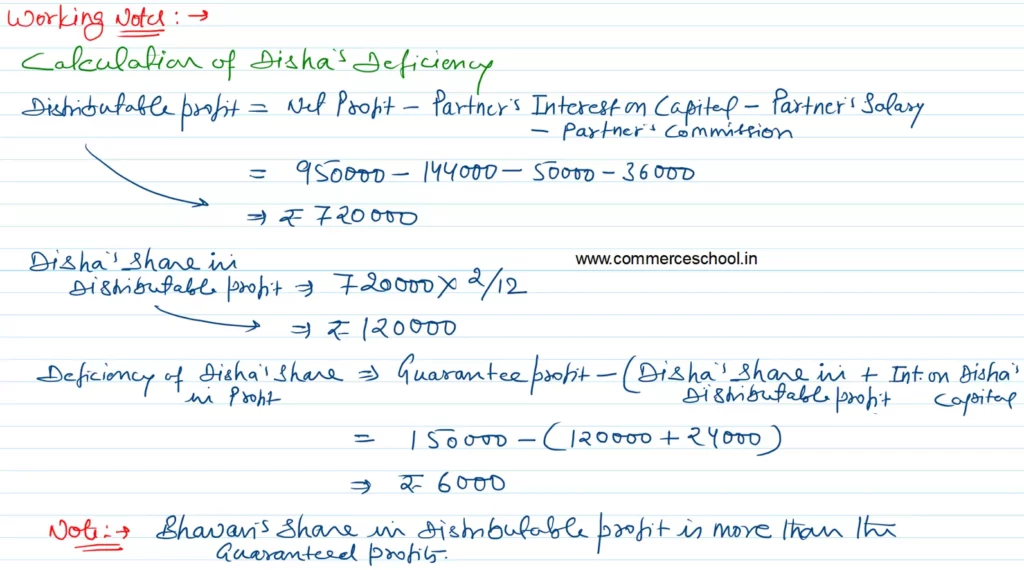 Working Notes :→
Calculation of Disha's Deficiency
Distributable profit = Net Profit - Partner's Interest on Capital - Partner's Salary
- Partner's Commission
= 950000 - 144000 - 50000 - 36000
⇒ ₹ 720000
Disha's share in
Distributable profit ⇒ 720000 × 2/12
www.commerceschool.in
⇒ ₹ 120000
Deficiency of Disha's share ⇒ Guarantee profit - (Disha's share in + Int. on Disha's
in Profit Distributable profit Capital
= 150000 - (120000 + 24000)
⇒ ₹ 6000
Note :→ Bhavan's share in Distributable profit is more than the
Guaranteed profits.